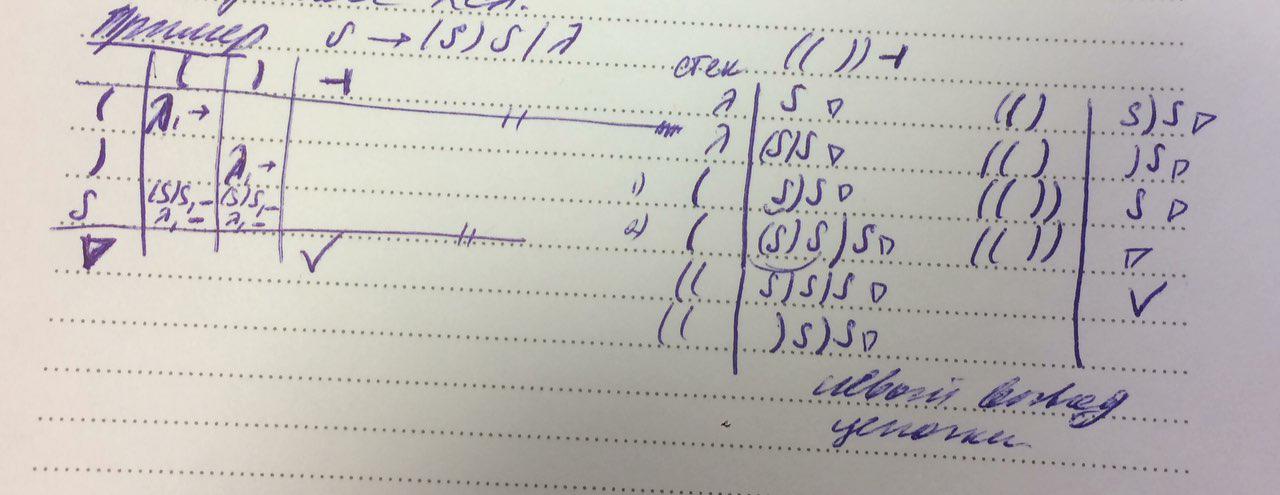 Пример S → (S)S | λ
( ) ⊣
( λ, →
) λ, →
S (S)S, – (S)S, –
λ, – λ, –
∇ ✓
стек (( )) ⊣
λ S ▷
λ (S)S ▷
1) ( S)S ▷
2) ( (S)S)S ▷
(( S)S)S ▷
(( )S)S ▷
(( ) S)S ▷
(( ) )S ▷
(( )) S ▷
(( )) ▷
✓
левой вывод
цепочки